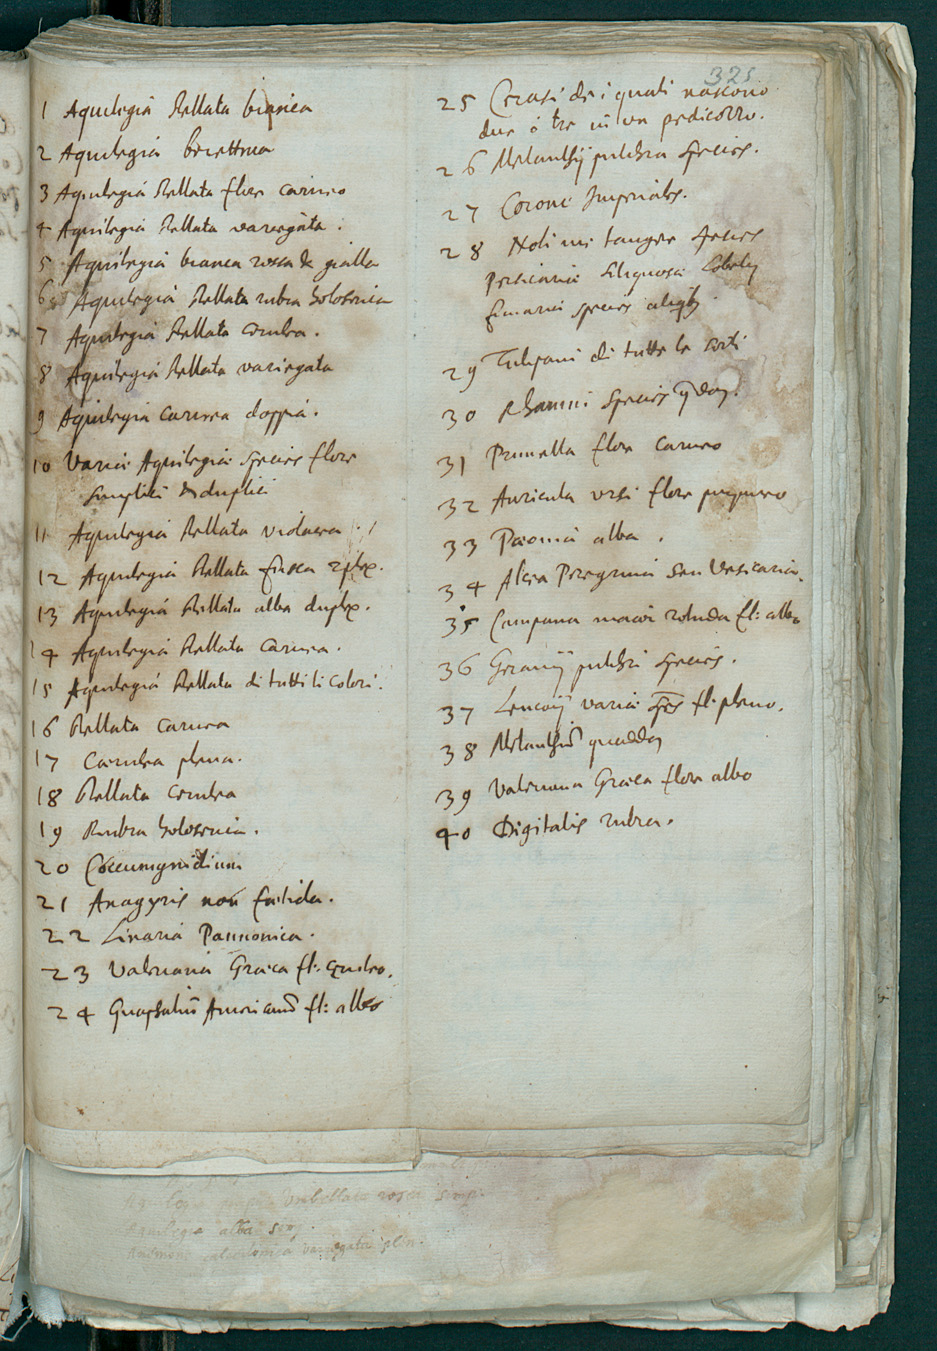 325
1 Aquilegia stellata bianca
2 Aquilegia berettina
3 Aquilegia stellata flore carneo
4 Aquilegia stellata variegata.
5 Aquilegia bianca rossa & gialla
6 Aquilegia stellata rubra holosericea
7 Aquilegia stellata cerulea.
8 Aquilegia stellata variegata
9 Aquilegia carnea doppia.
10 Varia Aquilegia species flore
simplici & duplici
11 Aquilegia stellata violacea
12 Aquilegia stellata fusca
13 Aquilegia stellata alba duplex.
14 Aquilegia stellata carnea.
15 Aquilegia stellata di tutti li colori.
16 Stellata carnea
17 Caerulea plena.
18 Stellata cerulea
19 Rubra holosericia.
20 Coccumgnidium
21 Anagyris non foetida.
22 Linaria Pannonica.
23 Valeriana Graeca fl: ceruleo.
24 Gnaphaliũ Americanũ fl: albo
25 Cerasi de i quali nascono
due ó tre in un pedicollo.
26 Melanthij pulchra species.
27 Corone Imperiales.
28 Noli me tangere species
Persicaria siliquosa
species
29 Tulipani di tutte le sorti
30 Rhamni species
31 Prunella flore carneo
32 Auricula ursi flore purpureo
33 Paeonia alba.
34 Alcea Peregrina seu Vesicaria.
35 Campana maior rotunda fl: albo
36 Geranij pulchra species.
37 Leucoij varia fl: pleno.
38 Melanthiũ quoddã
39 Valeriana Graeca flore albo
40 Digitalis rubra.
umbellata rosea simp.
Aquilegia alba
Anemone variegata plen.